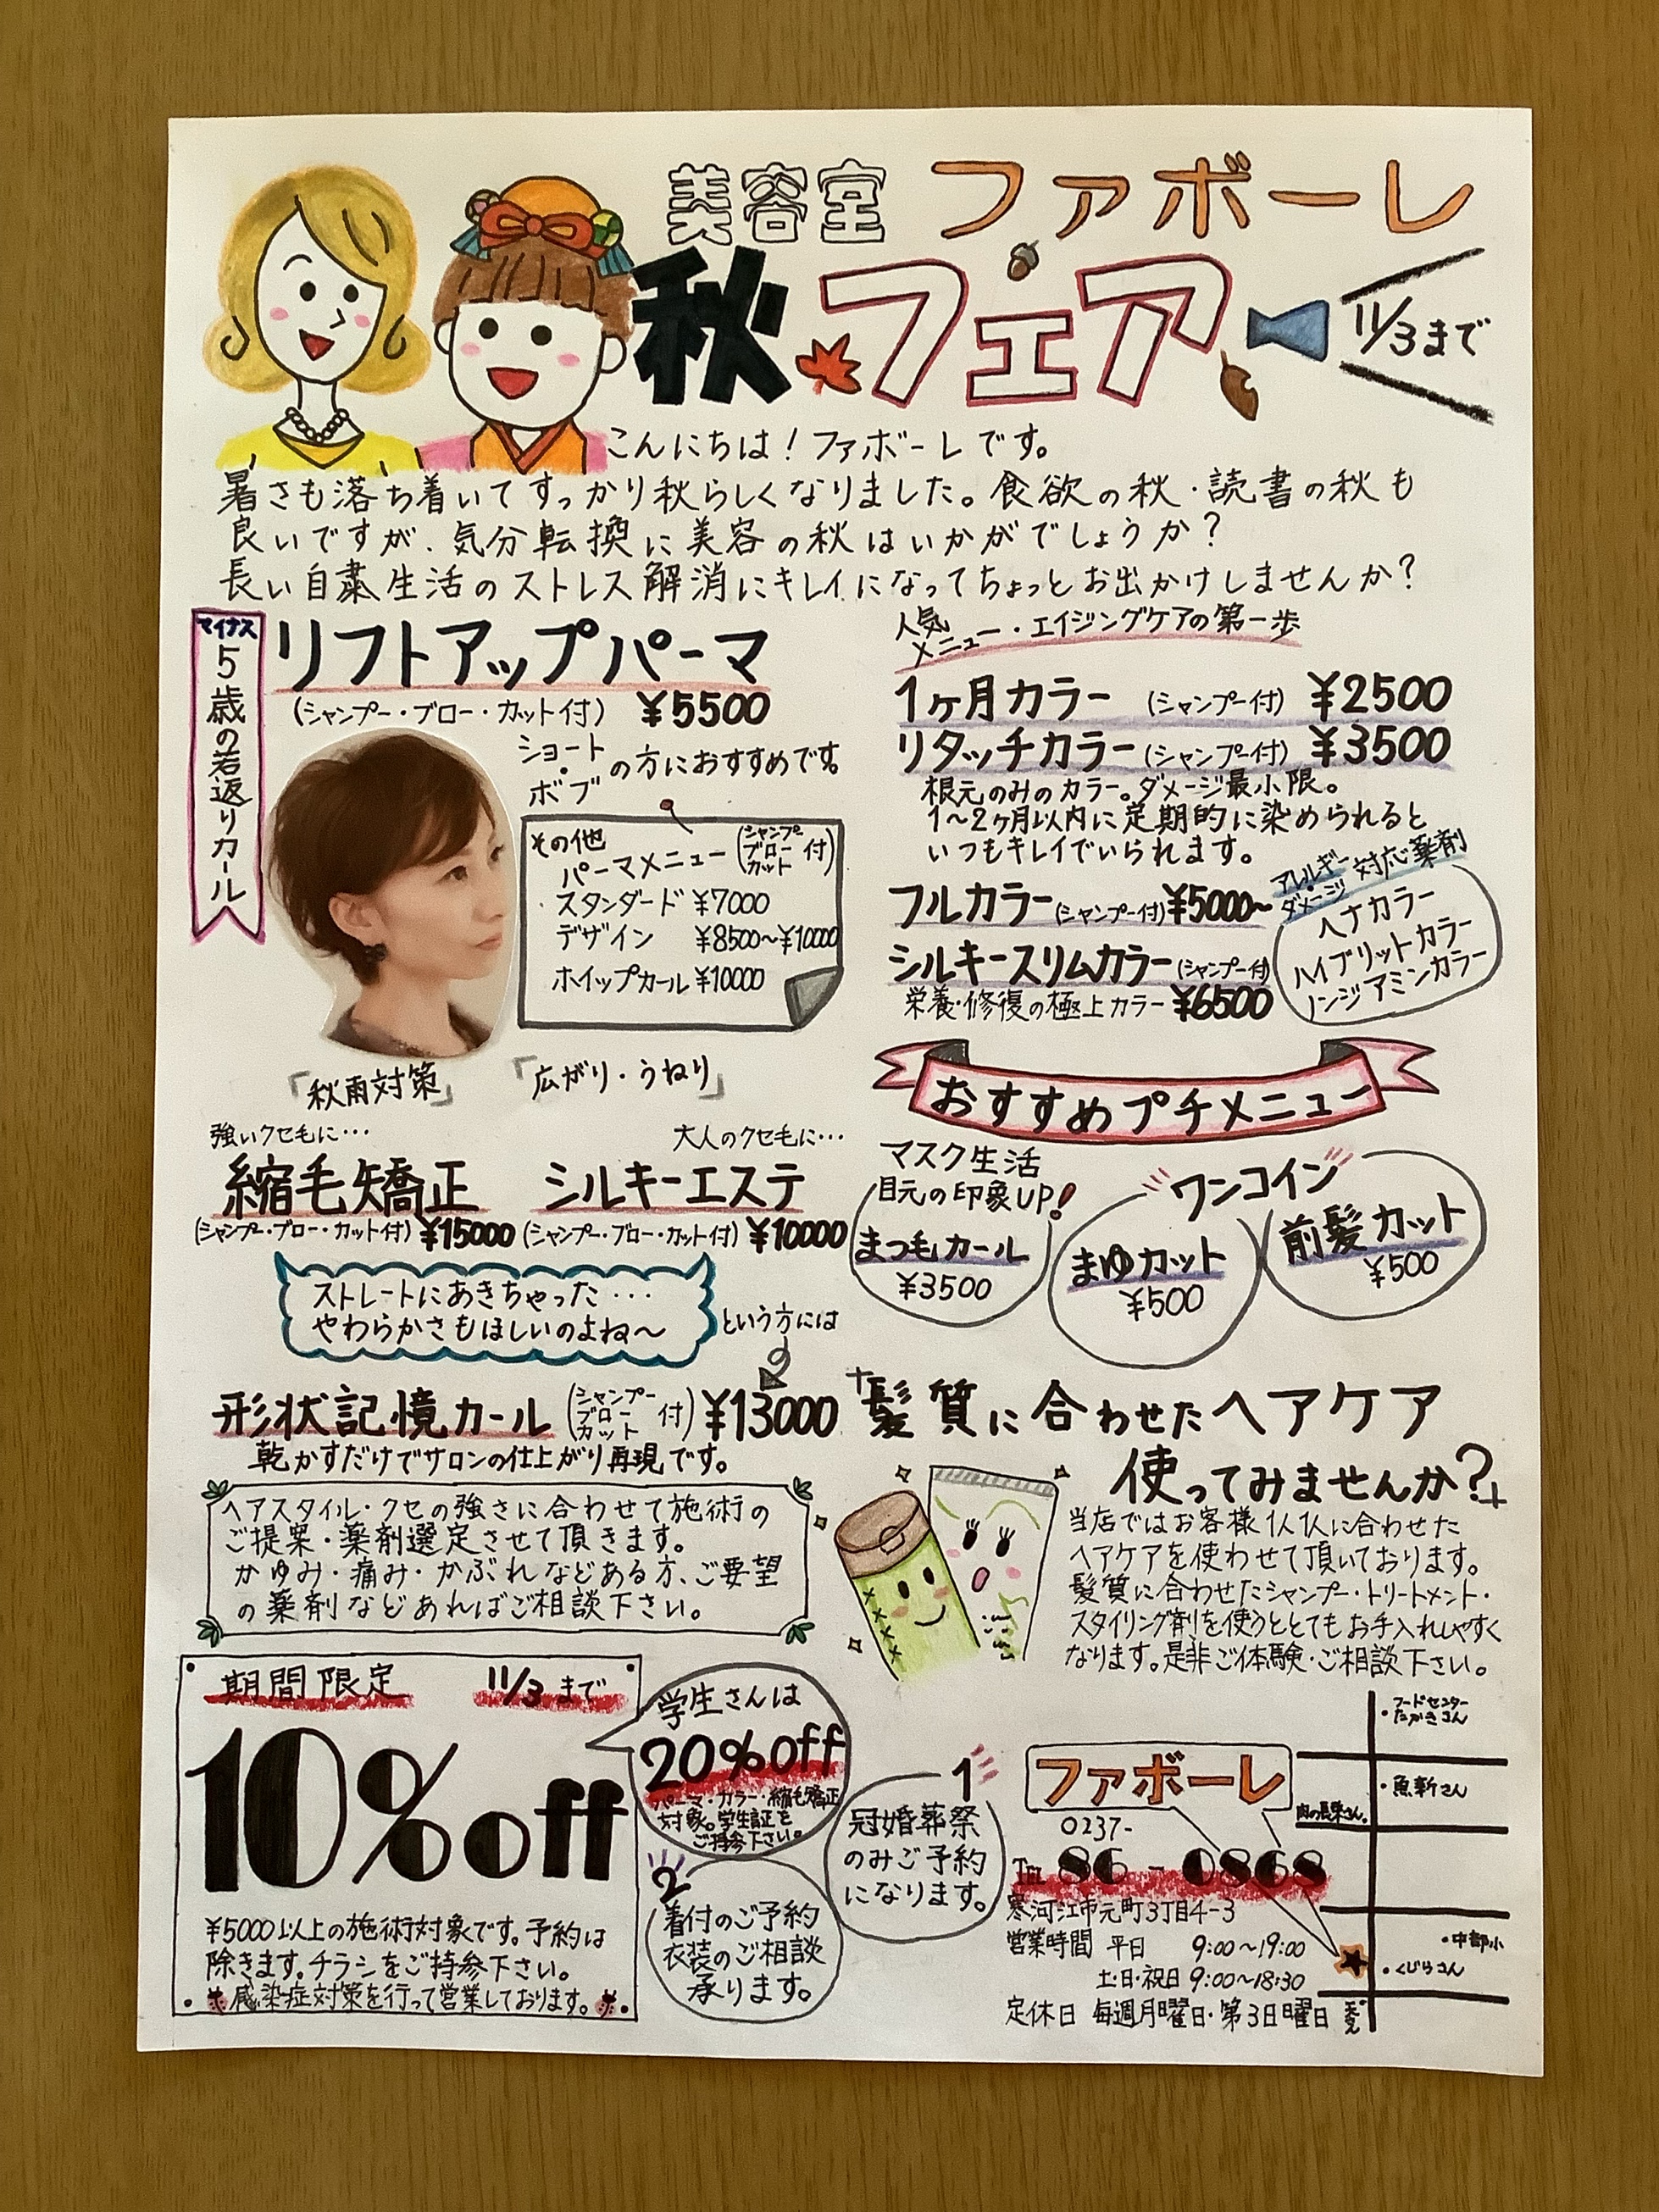 美容室 ファボーレ
秋フェア
11/3まで
こんにちは！ファボーレです。
暑さも落ち着いてすっかり秋らしくなりました。食欲の秋・読書の秋も
良いですが、気分転換に美容の秋はいかがでしょうか？
長い自粛生活のストレス解消にキレイになってちょっとお出かけしませんか？
マイナス5歳の若返りカール
リフトアップパーマ
(シャンプー・ブロー・カット付) ¥5500
ショート・ボブの方におすすめです。
その他
パーマメニュー(シャンプー ブロー カット付)
スタンダード ¥7000
デザイン ¥8500〜¥10000
ホイップカール ¥10000
人気メニュー・エイジングケアの第一歩
1ヶ月カラー (シャンプー付) ¥2500
リタッチカラー (シャンプー付) ¥3500
根元のみのカラー。ダメージ最小限。
1〜2ヶ月以内に定期的に染められると
いつもキレイでいられます。
フルカラー(シャンプー付)¥5000〜
シルキースリムカラー(シャンプー付)
栄養・修復の極上カラー ¥6500
アレルギー・ダメージ対応薬剤
ヘナカラー
ハイブリットカラー
ノンジアミンカラー
「秋雨対策」 「広がり・うねり」
強いクセ毛に…
縮毛矯正
(シャンプー・ブロー・カット付) ¥15000
大人のクセ毛に…
シルキーエステ
(シャンプー・ブロー・カット付) ¥10000
ストレートにあきちゃった…
やわらかさもほしいのよね〜
という方には
形状記憶カール (シャンプー ブロー カット付) ¥13000
乾かすだけでサロンの仕上がり再現です。
ヘアスタイル・クセの強さに合わせて施術の
ご提案・薬剤選定させて頂きます。
かゆみ・痛み・かぶれなどある方、ご要望
の薬剤などあればご相談下さい。
おすすめプチメニュー
マスク生活
目元の印象UP！
まつ毛カール
¥3500
ワンコイン
まゆカット
¥500
前髪カット
¥500
髪質に合わせたヘアケア
使ってみませんか？
当店ではお客様1人1人に合わせた
ヘアケアを使わせて頂いております。
髪質に合わせたシャンプー・トリートメント・
スタイリング剤を使うととてもお手入れしやすく
なります。是非ご体験・ご相談下さい。
期間限定 11/3まで
10%off
¥5000以上の施術対象です。予約は
除きます。チラシをご持参下さい。
感染症対策を行って営業しております。
学生さんは
20%off
パーマ・カラー・縮毛矯正
対象。学生証を
ご持参下さい。
1
冠婚葬祭
のみご予約
になります。
2
着付のご予約
衣装のご相談
承ります。
ファボーレ
0237-
TEL 86-0868
寒河江市元町3丁目4-3
営業時間 平日 9:00〜19:00
土・日・祝日 9:00〜18:30
定休日 毎週月曜日・第3日曜日
フードセンター
たかきさん
魚新さん
肉の長栄さん
中部小
くじらさん